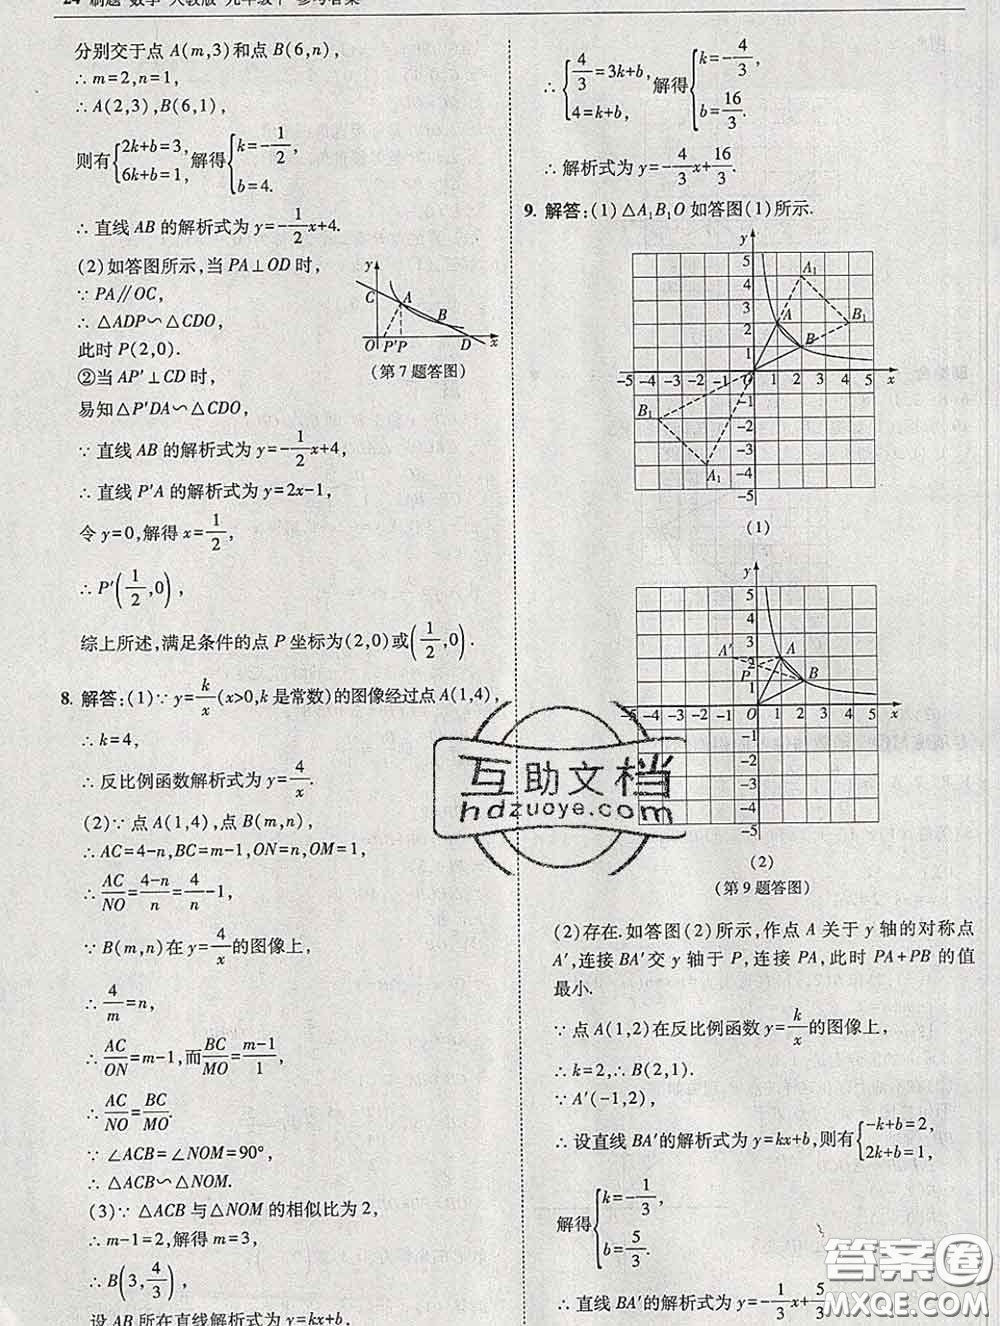 24 刷题 数学 人教版 九年级下 参考答案
分别交于点 A(m,3)和点 B(6,n),
∴ m=2,n=1,
∴ A(2,3),B(6,1),
则有{2k+b=3, 6k+b=1, 解得{k=-1/2, b=4.
∴ 直线 AB 的解析式为 y=-1/2x+4.
(2)如答图所示,当 PA⊥OD 时,
∵ PA∥OC,
∴ △ADP∽△CDO,
此时 P(2,0).
②当 AP′⊥CD 时,
易知△P′DA∽△CDO,
∵ 直线 AB 的解析式为 y=-1/2x+4,
∴ 直线 P′A 的解析式为 y=2x-1,
令 y=0,解得 x=1/2,
∴ P′(1/2,0),
综上所述,满足条件的点 P 坐标为(2,0)或(1/2,0).
y
C
A
B
O
P′
P
D
x
(第 7 题答图)
8. 解答:(1)∵ y=k/x(x>0,k 是常数)的图像经过点 A(1,4),
∴ k=4,
∴ 反比例函数解析式为 y=4/x.
(2)∵ 点 A(1,4),点 B(m,n),
∴ AC=4-n,BC=m-1,ON=n,OM=1,
∴ AC/NO=4-n/n=4/n-1,
∵ B(m,n)在 y=4/x的图像上,
∴ 4/m=n,
∴ AC/ON=m-1,而BC/MO=m-1/1,
∴ AC/NO=BC/MO.
∵ ∠ACB=∠NOM=90°,
∴ △ACB∽△NOM.
(3)∵ △ACB 与△NOM 的相似比为 2,
∴ m-1=2,解得 m=3,
∴ B(3,4/3),
设 AB 所在直线解析式为 y=kx+b,
∴ {4/3=3k+b, 4=k+b, 解得{k=-4/3, b=16/3.
∴ 解析式为 y=-4/3x+16/3.
9. 解答:(1)△A₁B₁O 如答图(1)所示.
y
5
4
3
2
1
A₁
A
B₁
B
-5 -4 -3 -2 -1 O 1 2 3 4 5 x
B₁
A₁
-1
-2
-3
-4
-5
(1)
y
5
4
3
2
1
A′
A
P
B
-5 -4 -3 -2 -1 O 1 2 3 4 5 x
-1
-2
-3
-4
-5
(2)
(第 9 题答图)
(2)存在.如答图(2)所示,作点 A 关于 y 轴的对称点
A′,连接 BA′交 y 轴于 P,连接 PA,此时 PA+PB 的值
最小.
∵ 点 A(1,2)在反比例函数 y=k/x的图像上,
∴ k=2,∴ B(2,1).
∵ A′(-1,2),
∴ 设直线 BA′的解析式为 y=kx+b,则有{-k+b=2, 2k+b=1,
解得{k=-1/3, b=5/3.
∴ 直线 BA′的解析式为 y=-1/3x+5/3
互助文档
hdzuoye.com
答案圈
MXQE.COM